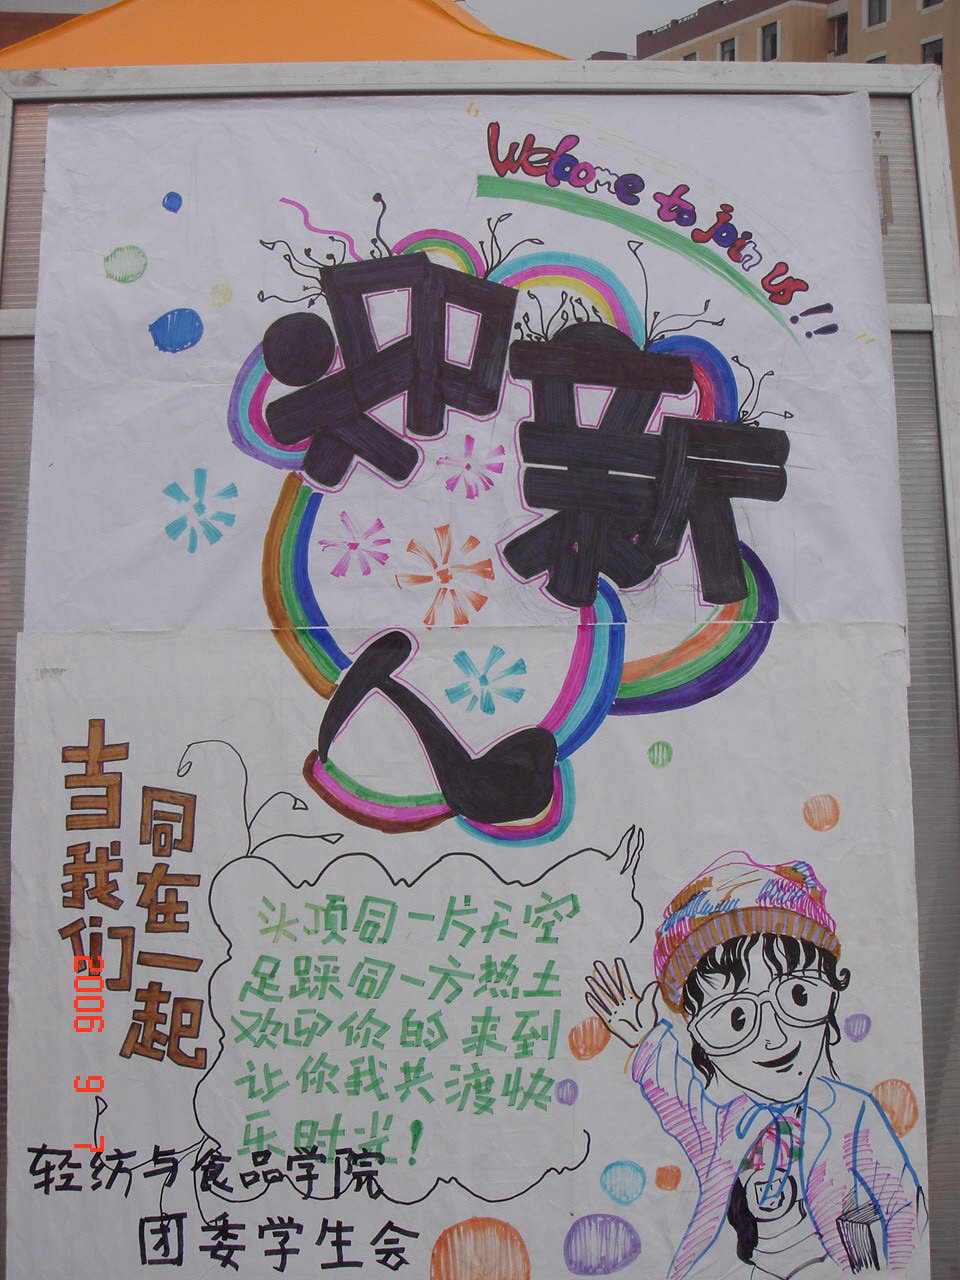 Welcome to join us!!
迎新
人
当我们
同在一起
头顶同一片天空
足踩同一方热土
欢迎你的来到
让你我共渡快
乐时光!
轻纺与食品学院
团委学生会
2006 9 7